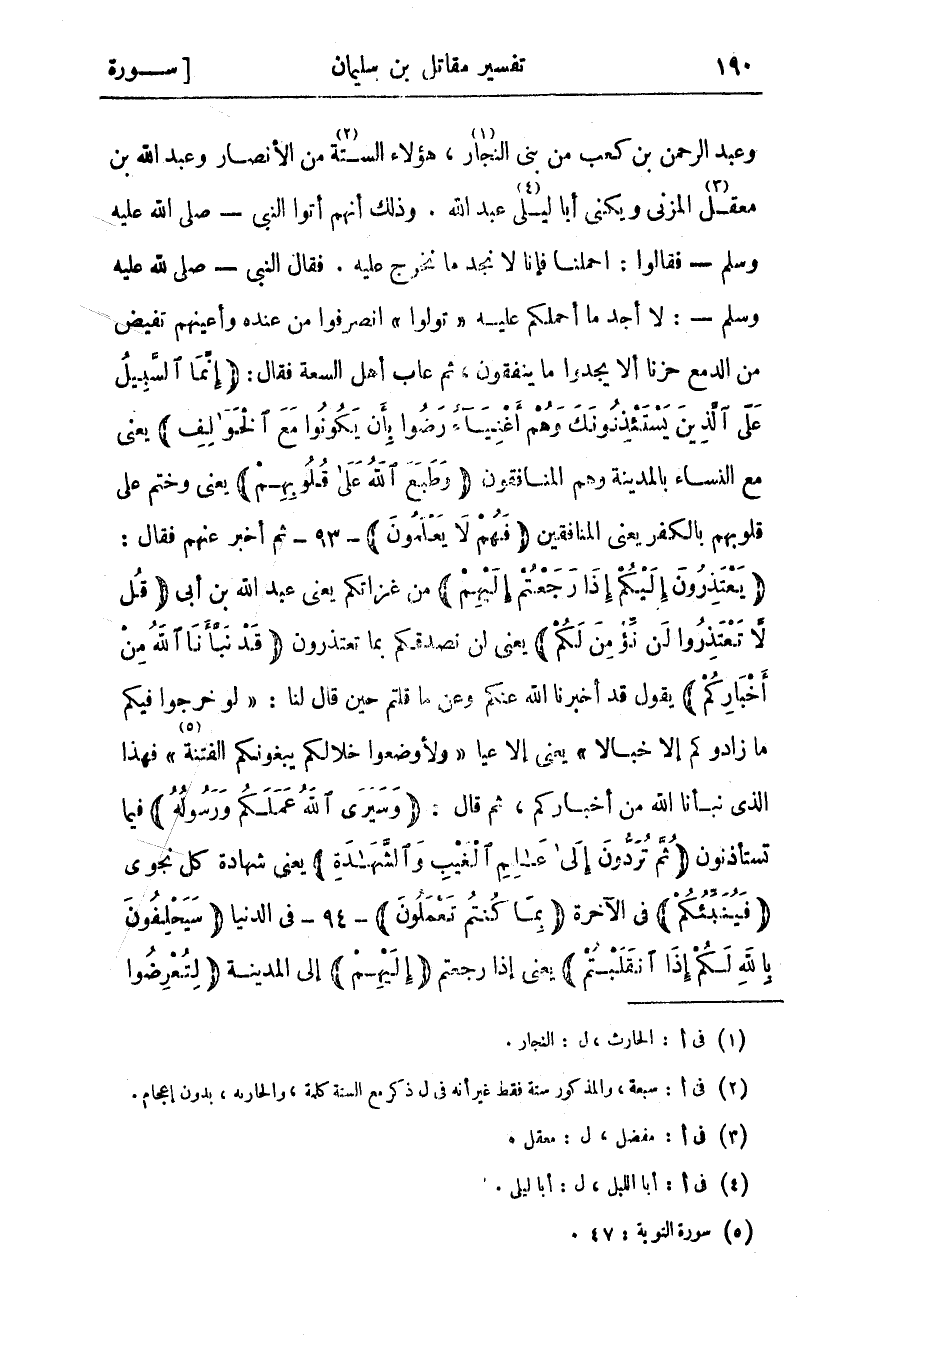 ١٩٠ تفسير مقاتل بن سليمان [ ســورة
وعبد الرحمن بن كعب من بنى النجار(١) ، هؤلاء الستة(٢) من الأنصار وعبد الله بن
معقل(٣) المزنى ويكنى أبا ليلى(٤) عبد الله . وذلك أنهم أتوا النبي — صلى الله عليه
وسلم — فقالوا : احملنا فإنا لا نجد ما نخرج عليه . فقال النبي — صلى الله عليه
وسلم — : لا أجد ما أحملكم عليه « تولوا » انصرفوا من عنده وأعينهم تفيض
من الدمع حزنا ألا يجدوا ما ينفقون ، ثم عاب أهل السعة فقال : ﴿ إِنَّمَا ٱلسَّبِيلُ
عَلَى ٱلَّذِينَ يَسْتَـْٔذِنُونَكَ وَهُمْ أَغْنِيَآءُ رَضُوا بِأَن يَكُونُوا مَعَ ٱلْخَوَالِفِ ﴾ يعنى
مع النساء بالمدينة وهم المنافقون ﴿ وَطَبَعَ ٱللَّهُ عَلَىٰ قُلُوبِهِمْ ﴾ يعنى وختم على
قلوبهم بالكفر يعنى المنافقين ﴿ فَهُمْ لَا يَعْلَمُونَ ﴾ — ٩٣ — ثم أخبر عنهم فقال :
﴿ يَعْتَذِرُونَ إِلَيْكُمْ إِذَا رَجَعْتُمْ إِلَيْهِمْ ﴾ من غزاتكم يعنى عبد الله بن أبى ﴿ قُل
لَّا تَعْتَذِرُوا لَن نُّؤْمِنَ لَكُمْ ﴾ يعنى لن نصدقكم بما تعتذرون ﴿ قَدْ نَبَّأَنَا ٱللَّهُ مِنْ
أَخْبَارِكُمْ ﴾ يقول قد أخبرنا الله عنكم وعن ما قلتم حين قال لنا : « لو خرجوا فيكم
ما زادوكم إلا خبالا » يعنى إلا عيا « ولأوضعوا خلالكم يبغونكم الفتنة(٥) » فهذا
الذى نبأنا الله من أخباركم ، ثم قال : ﴿ وَسَيَرَى ٱللَّهُ عَمَلَكُمْ وَرَسُولُهُ ﴾ فيما
تستأذنون ﴿ ثُمَّ تُرَدُّونَ إِلَىٰ عَـٰلِمِ ٱلْغَيْبِ وَٱلشَّهَـٰدَةِ ﴾ يعنى شهادة كل نجوى
﴿ فَيُنَبِّئُكُمْ ﴾ فى الآخرة ﴿ بِمَا كُنتُمْ تَعْمَلُونَ ﴾ — ٩٤ — فى الدنيا ﴿ سَيَحْلِفُونَ
بِٱللَّهِ لَكُمْ إِذَا ٱنقَلَبْتُمْ ﴾ يعنى إذا رجعتم ﴿ إِلَيْهِمْ ﴾ إلى المدينة ﴿ لِتُعْرِضُوا
(١) فى أ : الحارث ، ل : النجار .
(٢) فى أ : سبعة ، والمذكور ستة فقط غير أنه فى ل ذكر مع الستة كلمة ، والحارىه ، بدون إعجام .
(٣) فى أ : مفضل ، ل : معقل .
(٤) فى أ : أبا الليل ، ل : أبا ليلى .
(٥) سورة التوبة : ٤٧ .